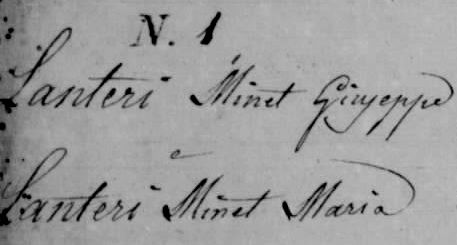 N. 1
Lanteri Minet Giuseppe
e
Lanteri Minet Maria